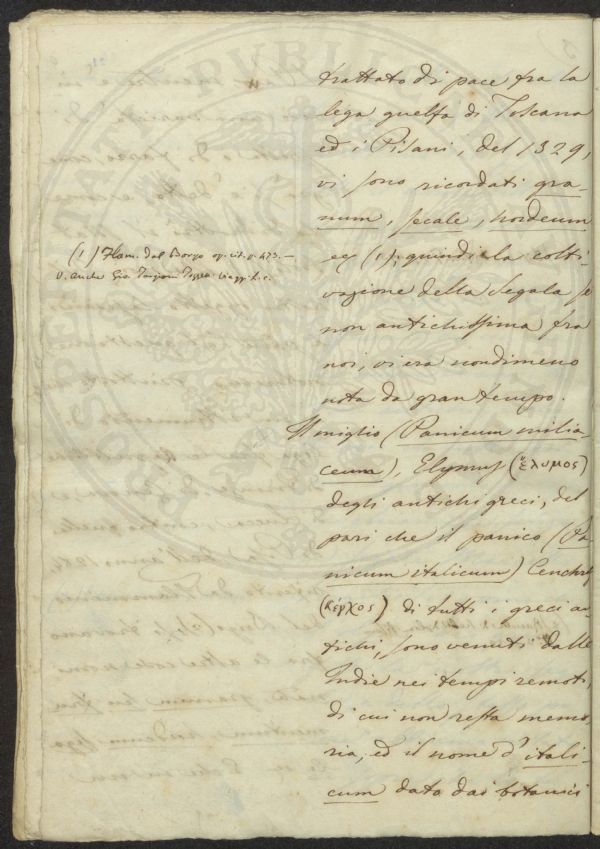 trattato di pace fra la
lega guelfa di Toscana
ed i Pisani, del 1329,
vi sono ricordati gra-
num, secale, hordeum
(1); quindi la colti-
vazione della Segala se
non antichissima fra
noi, vi era nondimeno
nota da gran tempo.
Il miglio (Panicum milia-
ceum), Elymus (ἔλυμος)
degli antichi greci, del
pari che il panico (Pa-
nicum italicum) Cenchrus
(κέγχος) di tutti i greci an-
tichi, sono venuti dalle
Indie nei tempi remoti,
di cui non resta memo-
ria, ed il nome d'itali-
cum dato dai botanici
(1) Flam. dal Borgo op. cit. p. 473. —
V. anche Gio. Targioni Tozzetti viaggi t. c.